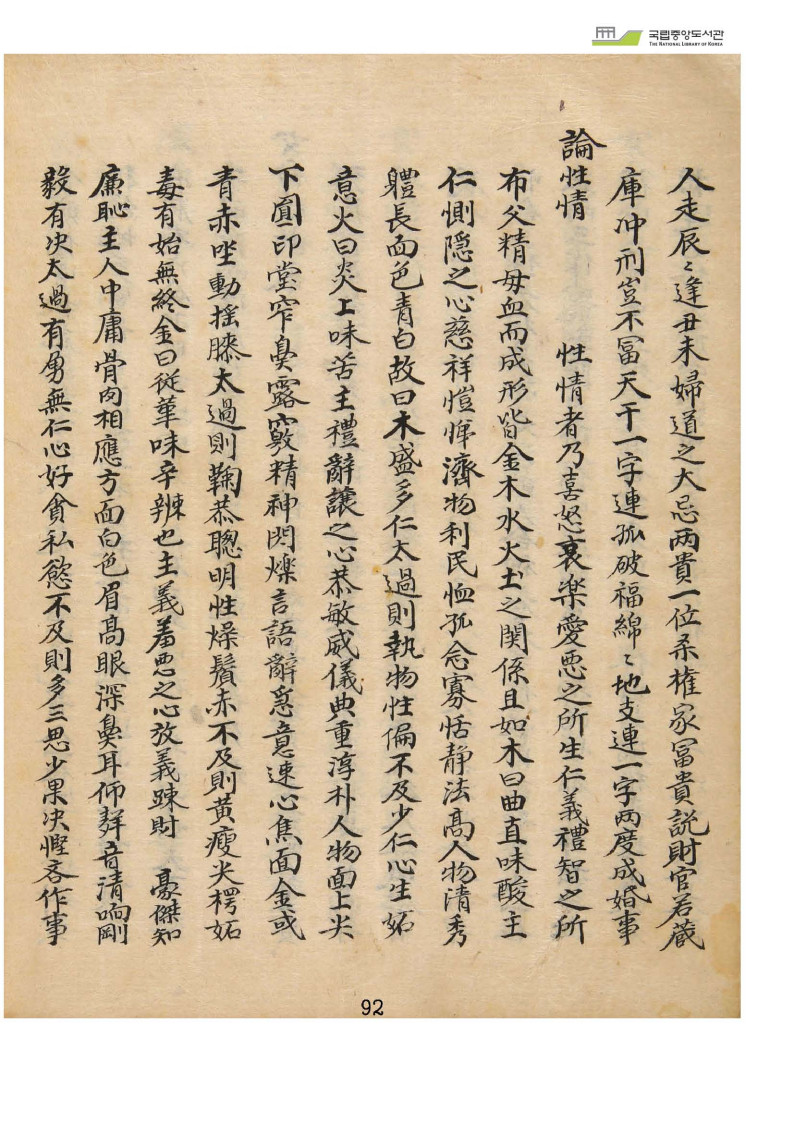 국립중앙도서관
THE NATIONAL LIBRARY OF KOREA
人走辰〻逢丑未婦道之大忌兩貴一位杀権家冨貴説財官若蔵
庫冲刑豈不冨天干一字連孤破福綿〻地支連一字兩度成婚事
論性情 性情者乃喜怒哀楽愛悪之所生仁義禮智之所
布父精母血而成形皆金木水火土之関係且如木曰曲直味酸主
仁惻隠之心慈祥愷悌濟物利民恤孤念寡恬静法髙人物清秀
軆長面色青白故曰木盛多仁太過則執物性偏不及少仁心生妬
意火曰炎上味苦主禮辭讓之心恭敏威儀典重淳朴人物面上尖
下圓印堂窄鼻露竅精神閃爍言語辭急意速心焦面金或
青赤坐動揺膝太過則鞠恭聰明性燥鬚赤不及則黄瘦尖楞妬
毒有始無終金曰従革味辛辣也主義羞悪之心放義踈財 豪傑知
廉恥主人中庸骨肉相應方面白色眉髙眼深鼻耳仰鼾音清响剛
毅有决太過有勇無仁心好貪私慾不及則多三思少果决慳吝作事
92